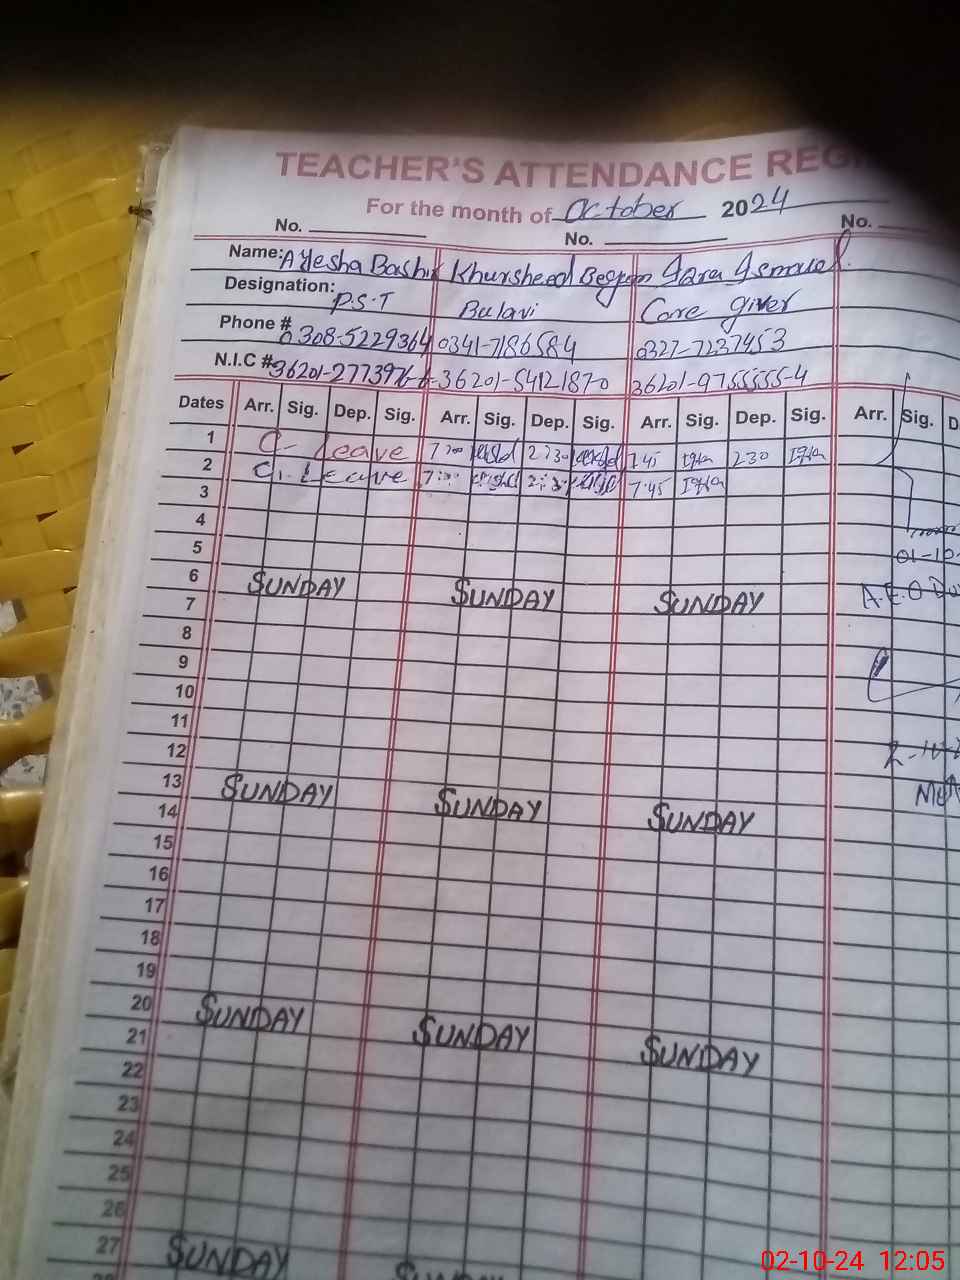 TEACHER'S ATTENDANCE
For the month of October 2024
No. No. No.
Name: Ayesha Bashir Khursheed Begum Isra Ismaeel
Designation: P.S.T Bulavi Care giver
Phone # 0308-5229364 0341-7186584 0327-7237453
N.I.C # 36201-5412187-0 36201-9755555-4
Dates Arr. Sig. Dep. Sig. Arr. Sig. Dep. Sig. Arr. Sig. Dep. Sig. Arr. Sig.
1 C- Leave 7:00 2:30 7:45 2:30
2 C. Leave 7:00 7:45
3
4
5
6 SUNDAY SUNDAY SUNDAY
7
8
9
10
11
12
13 SUNDAY SUNDAY SUNDAY
14
15
16
17
18
19
20 SUNDAY SUNDAY SUNDAY
21
22
23
24
25
26
27 SUNDAY SUNDAY
01-10
A.E.O
02-10-24 12:05